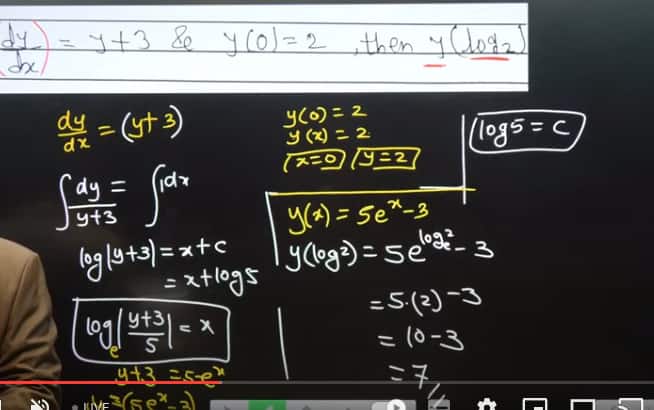 dy/dx = y+3 & y(0)=2, then y(log2)
dy/dx = (y+3)
∫ dy/y+3 = ∫ 1dx
log|y+3| = x+c
= x+log5
logₑ|y+3/5| = x
y+3 = 5eˣ
y(0) = 2
y(x) = 2
x=0 y=2
y(x) = 5eˣ-3
y(log2) = 5e^logₑ2 - 3
= 5.(2) - 3
= 10-3
= 7
log5 = c